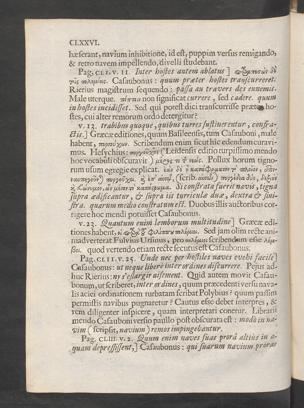 CLXXVI.
hæserant, navium inhibitione, id est, puppim versus remigando,
& retro navem impellendo, divelli studebant.
Pag. CLI. v. 11. Inter hostes autem ablatus]
Casaubonus: quum præter hostes transcurreret.
Rierius magistrum sequendo: passa au travers des ennemis.
Male uterque. πίπτω non significat currere, sed cadere. quum
in hostes incidisset. Sed qui potest dici transcurrisse præter hostes,
cui alter remorum ordo detergitur?
v. 12. trabibus quoque, quibus turres sustinerentur, confractis.]
Græcæ editiones, quum Basileensis, tum Casauboni, male
habent, Scribendum enim sicut hic edendum curavimus.
Hesychius: (Leidensi hoc turpissimo mendo
hoc vocabuli obscuravit) Pollux horum tignorum
usum egregie explicat.
(scrib.
Si constrata fuerit navis, tigna
supra ædificantur, & supra ea turriculæ duæ, dextra & sinistra.
quarum medio constratum est. Duobus illis auctoribus corrigere
hoc mendi potuisset Casaubonus.
v. 22. Quantum enim lemborum multitudine] Græcæ editiones
habent, Sed jam olim recte animadverterat
Fulvius Ursinus, pro scribendum esse
quod vertendo etiam recte secutus est Casaubonus.
Pag. CLII. v. 25. Unde nec per hostiles naves evehi facile]
Casaubonus: ut neque libere inter ordines discurrere. Pejus adhuc
Rierius: ny s'eslargir aisement. Quid autem movit Casaubonum,
ut scriberet, inter ordines, quum præcedenti versu navalis
aciei ordinationem turbatam scribat Polybius? quum passim
permistis navibus pugnaretur? Cautus esse debet interpres, &
rem diligenter inspicere, quam interpretari conetur. Librarii
mendo Casauboni versio paullo post obscurata est: modo in navim
(scripsit, navium) remos impingebantur.
Pag. CLIII. v. 2. Quum enim naves suas prora altius in aquam
depressissent,] Casaubonus: qui suarum navium proras